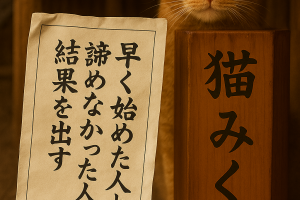 早く始めた人
諦めなかった人
結果を出す
猫みく